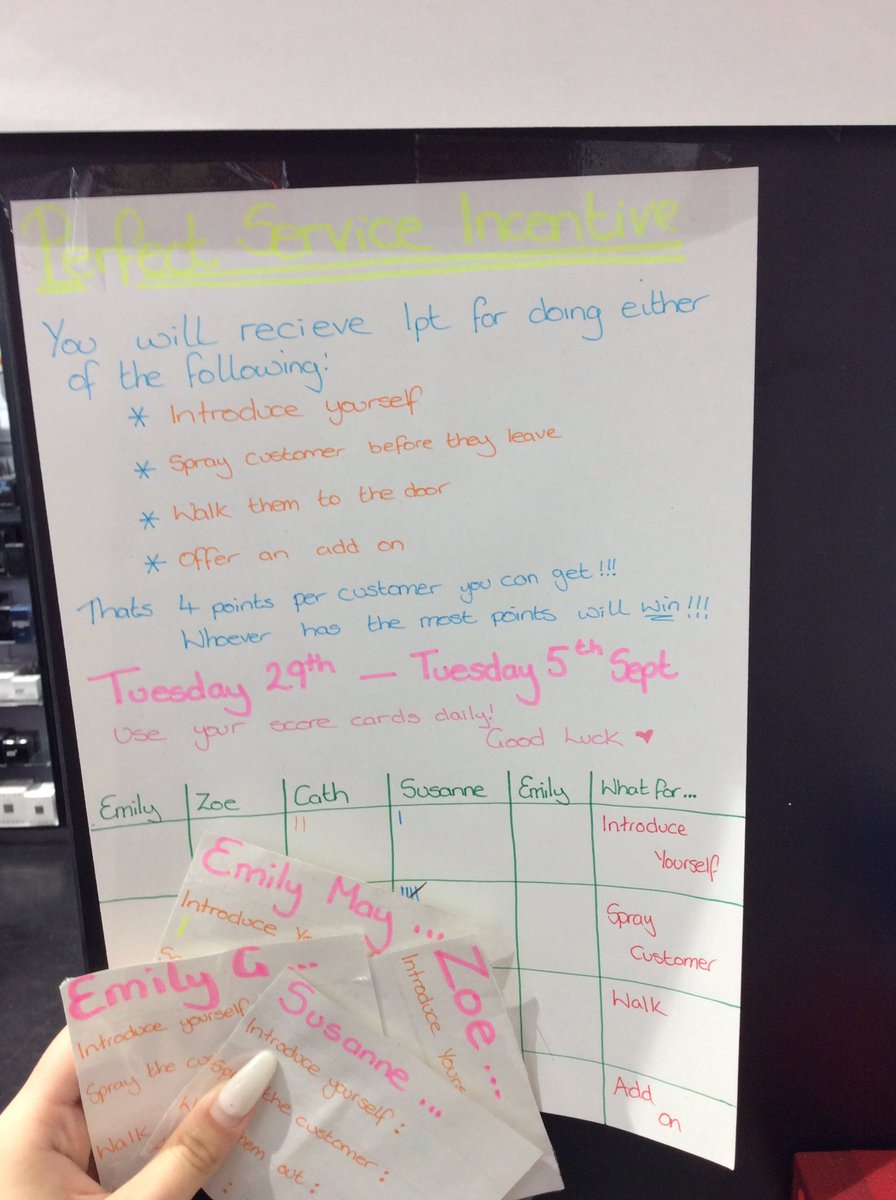 Perfect Service Incentive
You will recieve 1pt for doing either
of the following:
* Introduce yourself
* Spray customer before they leave
* Walk them to the door
* Offer an add on
Thats 4 points per customer you can get!!!
Whoever has the most points will win!!!
Tuesday 29th — Tuesday 5th Sept
Use your score cards daily!
Good Luck ♥
Emily Zoe Cath Susanne Emily What for...
Introduce
Yourself
Spray
Customer
Walk
Add
on
Emily May ...
Introduce
Emily G ...
Introduce yourself
Spray the
Walk
Susanne ...
Introduce yourself:
the customer:
out:
Zoe ...
Introduce